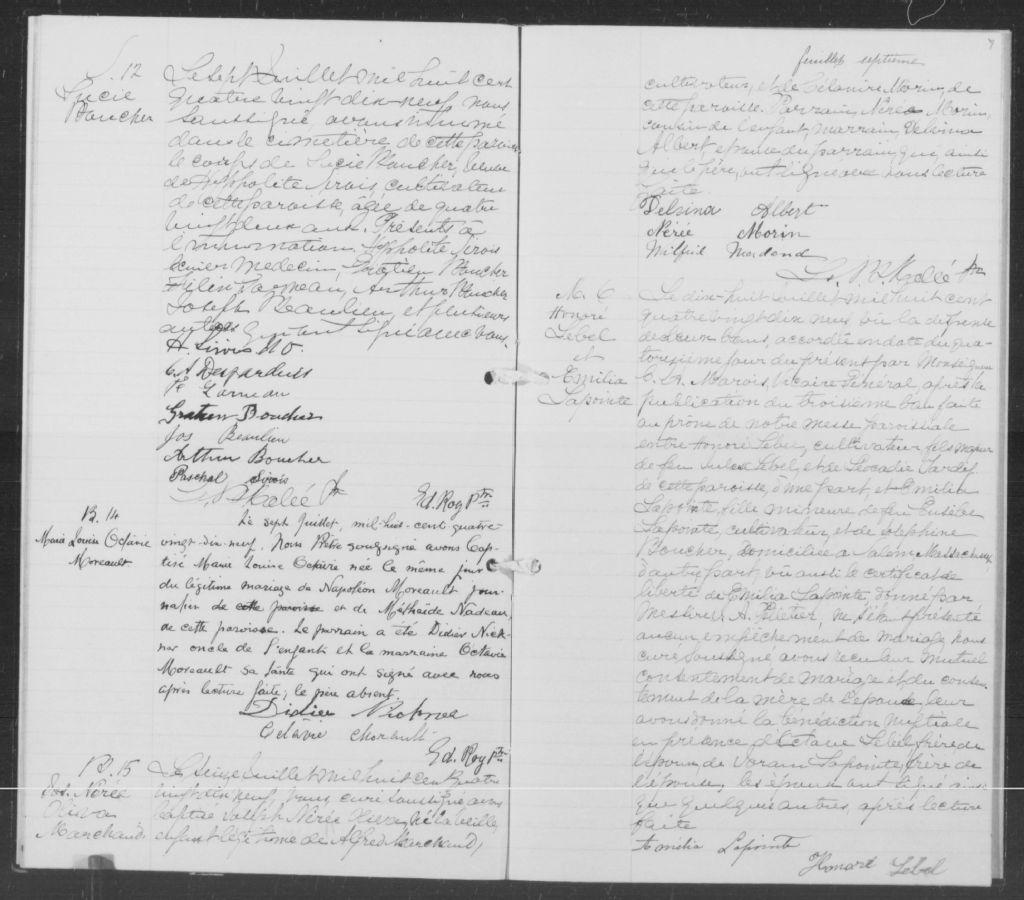 S. 12
Lucie
Boucher
Le sept Juillet mil huit cent
quatre vingt dix-neuf, nous
soussigné avons inhumé
dans le cimetière de cette paroisse
le corps de Lucie Boucher, veuve
de Hippolite Sirois, cultivateur
de cette paroisse, âgée de quatre
vingt deux ans. Présents à
l'inhumation, Hippolite Sirois
Médecin, Gratien Boucher
Garneau, Arthur Boucher
Joseph Beaulieu, et plusieurs
autres
H. Sirois M.D.
C. A. Desjardins
F. Garneau
Gratien Boucher
Jos Beaulieu
Arthur Boucher
Paschal Sirois
Ptre
Ed. Roy Ptre
B. 14
Marie Louise Octavie
Moreault
Le sept Juillet, mil-huit-cent quatre
vingt-dix-neuf. Nous Prêtre soussigné avons bap-
tisé Marie Louise Octavie née le même jour
du légitime mariage de Napoléon Moreault jour-
nalier de cette paroisse et de Nadeau,
de cette paroisse. Le parrain a été Didier
oncle de l'enfant et la marraine Octavie
Moreault sa tante qui ont signé avec nous
après lecture faite; le père absent.
Didier
Octavie Morault
Ed. Roy Ptre
B. 15
Jos. Nérée
Marchand
Le Seize Juillet mil huit cent quatre
vingt dix neuf, nous, curé soussigné avons
baptisé Joseph Nérée né la veille,
enfant légitime de Alfred Marchand,
7
feuillet septième
cultivateur, et de Morin, de
cette paroisse. Parrain, Nérée Morin,
cousin de l'enfant, marraine Delvina
Albert épouse du parrain qui, ainsi
que le père, ont signé avec nous lecture
faite.
Delvina Albert
Nérée Morin
Ptre
M. 6
Honoré
Lebel
et
Emilia
Lapointe
Le dix-huit Juillet mil huit cent
quatre vingt dix neuf vu la dispense
de deux bans, accordée en date du qua-
torzième jour du présent par Monseigneur
C. A. Marois, Vicaire Général, après la
publication du troisième ban faite
au prône de notre messe paroissiale
entre Honoré Lebel, cultivateur fils majeur
de feu Jules Lebel, et de Léocadie Tardif
de cette paroisse, d'une part, et Emilia
Lapointe, fille mineure de feu Eusèbe
Lapointe, cultivateur, et de Joséphine
Boucher, domiciliée à Salem Massachusetts
d'autre part, vu aussi le certificat de
liberté de Emilia Lapointe donné par
Messire A. Peletier, ne s'étant présenté
aucun empêchement de mariage nous
curé soussigné avons reçu leur mutuel
consentement de mariage et du consen-
tement de la mère de l'épouse, leur
avons donné la bénédiction nuptiale
en présence d'Octave Lebel frère de
l'époux, de Lapointe, frère de
l'épouse, les époux ont signé ainsi
que quelques autres après lecture
faite
Emilia Lapointe
Honoré Lebel